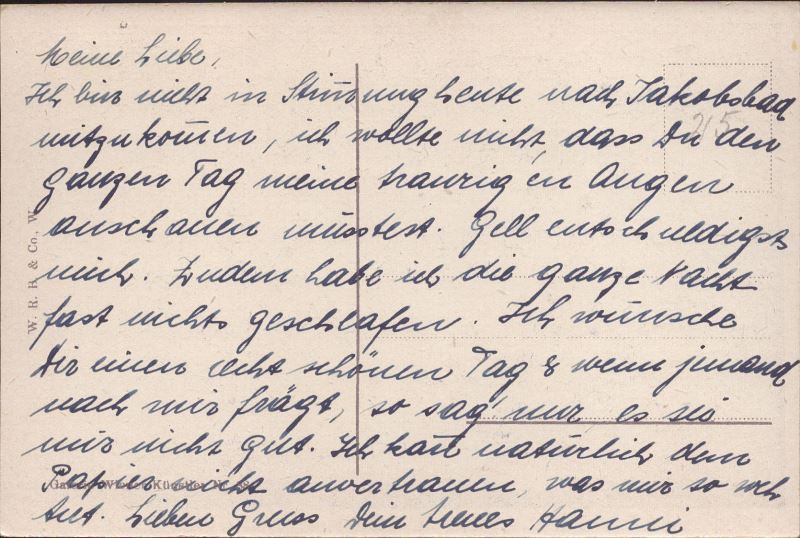 Meine Liebe,
Ich bin nicht in Stim̄ung heute nach Jakobsbad
mitzukom̄en, ich wollte nicht, dass Du den
ganzen Tag meine traurigen Augen
anschauen müsstest. Gell entschuldigst
mich. Zudem habe ich die ganze Nacht
fast nichts geschlafen. Ich wünsche
Dir einen recht schönen Tag & wenn jemand
nach mir frägt, so sag' nur es sei
mir nicht gut. Ich kan̄ natürlich dem
Papier nicht anvertrauen, was mir so weh
tut. Lieben Gruss Dein treues Hanni
215
W. R. B. & Co., W.
Galerie Wiener Künstler Nr.